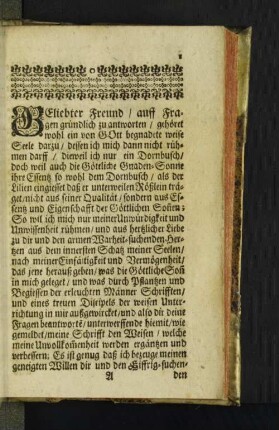 1
BEliebter Freund / auff Fra-
gen gründlich zu antworten / gehöret
wohl ein von GOtt begnadete weise
Seele darzu / dessen ich mich dann nicht rüh-
men darff / dieweil ich nur ein Dornbusch /
doch weil auch die Göttliche Gnaden-Sonne
ihre Essentz so wohl dem Dornbusch / als der
Lilien eingiesset daß er unterweilen Rößlein trä-
get / nicht aus seiner Qualität / sondern aus Es-
sentz und Eigenschafft der Göttlichen Sonen:
So wil ich mich nur meiner Unwürdigkeit und
Unwissenheit rühmen / und aus hertzlicher Liebe
zu dir und den armen Warheit-suchenden Her-
tzen aus dem innersten Schatz meiner Seelen /
nach meiner Einfältigkeit und Vermögenheit /
das jene heraus geben / was die Göttliche Soñ
in mich geleget / und was durch Pflantzen und
Begiessen der erleuchten Männer Schrifften /
und eines treuen Discipels der weisen Unter-
richtung in mir außgewircket / und also dir deine
Fragen beantworte / unterwerffende hiemit / wie
gemeldet / meine Schrifft den Weisen / welche
meine Unvollkoṁenheit werden ergäntzen und
verbessern; Es ist genug daß ich bezeuge meinen
geneigten Willen dir und den Eiffrig-suchen-
A den